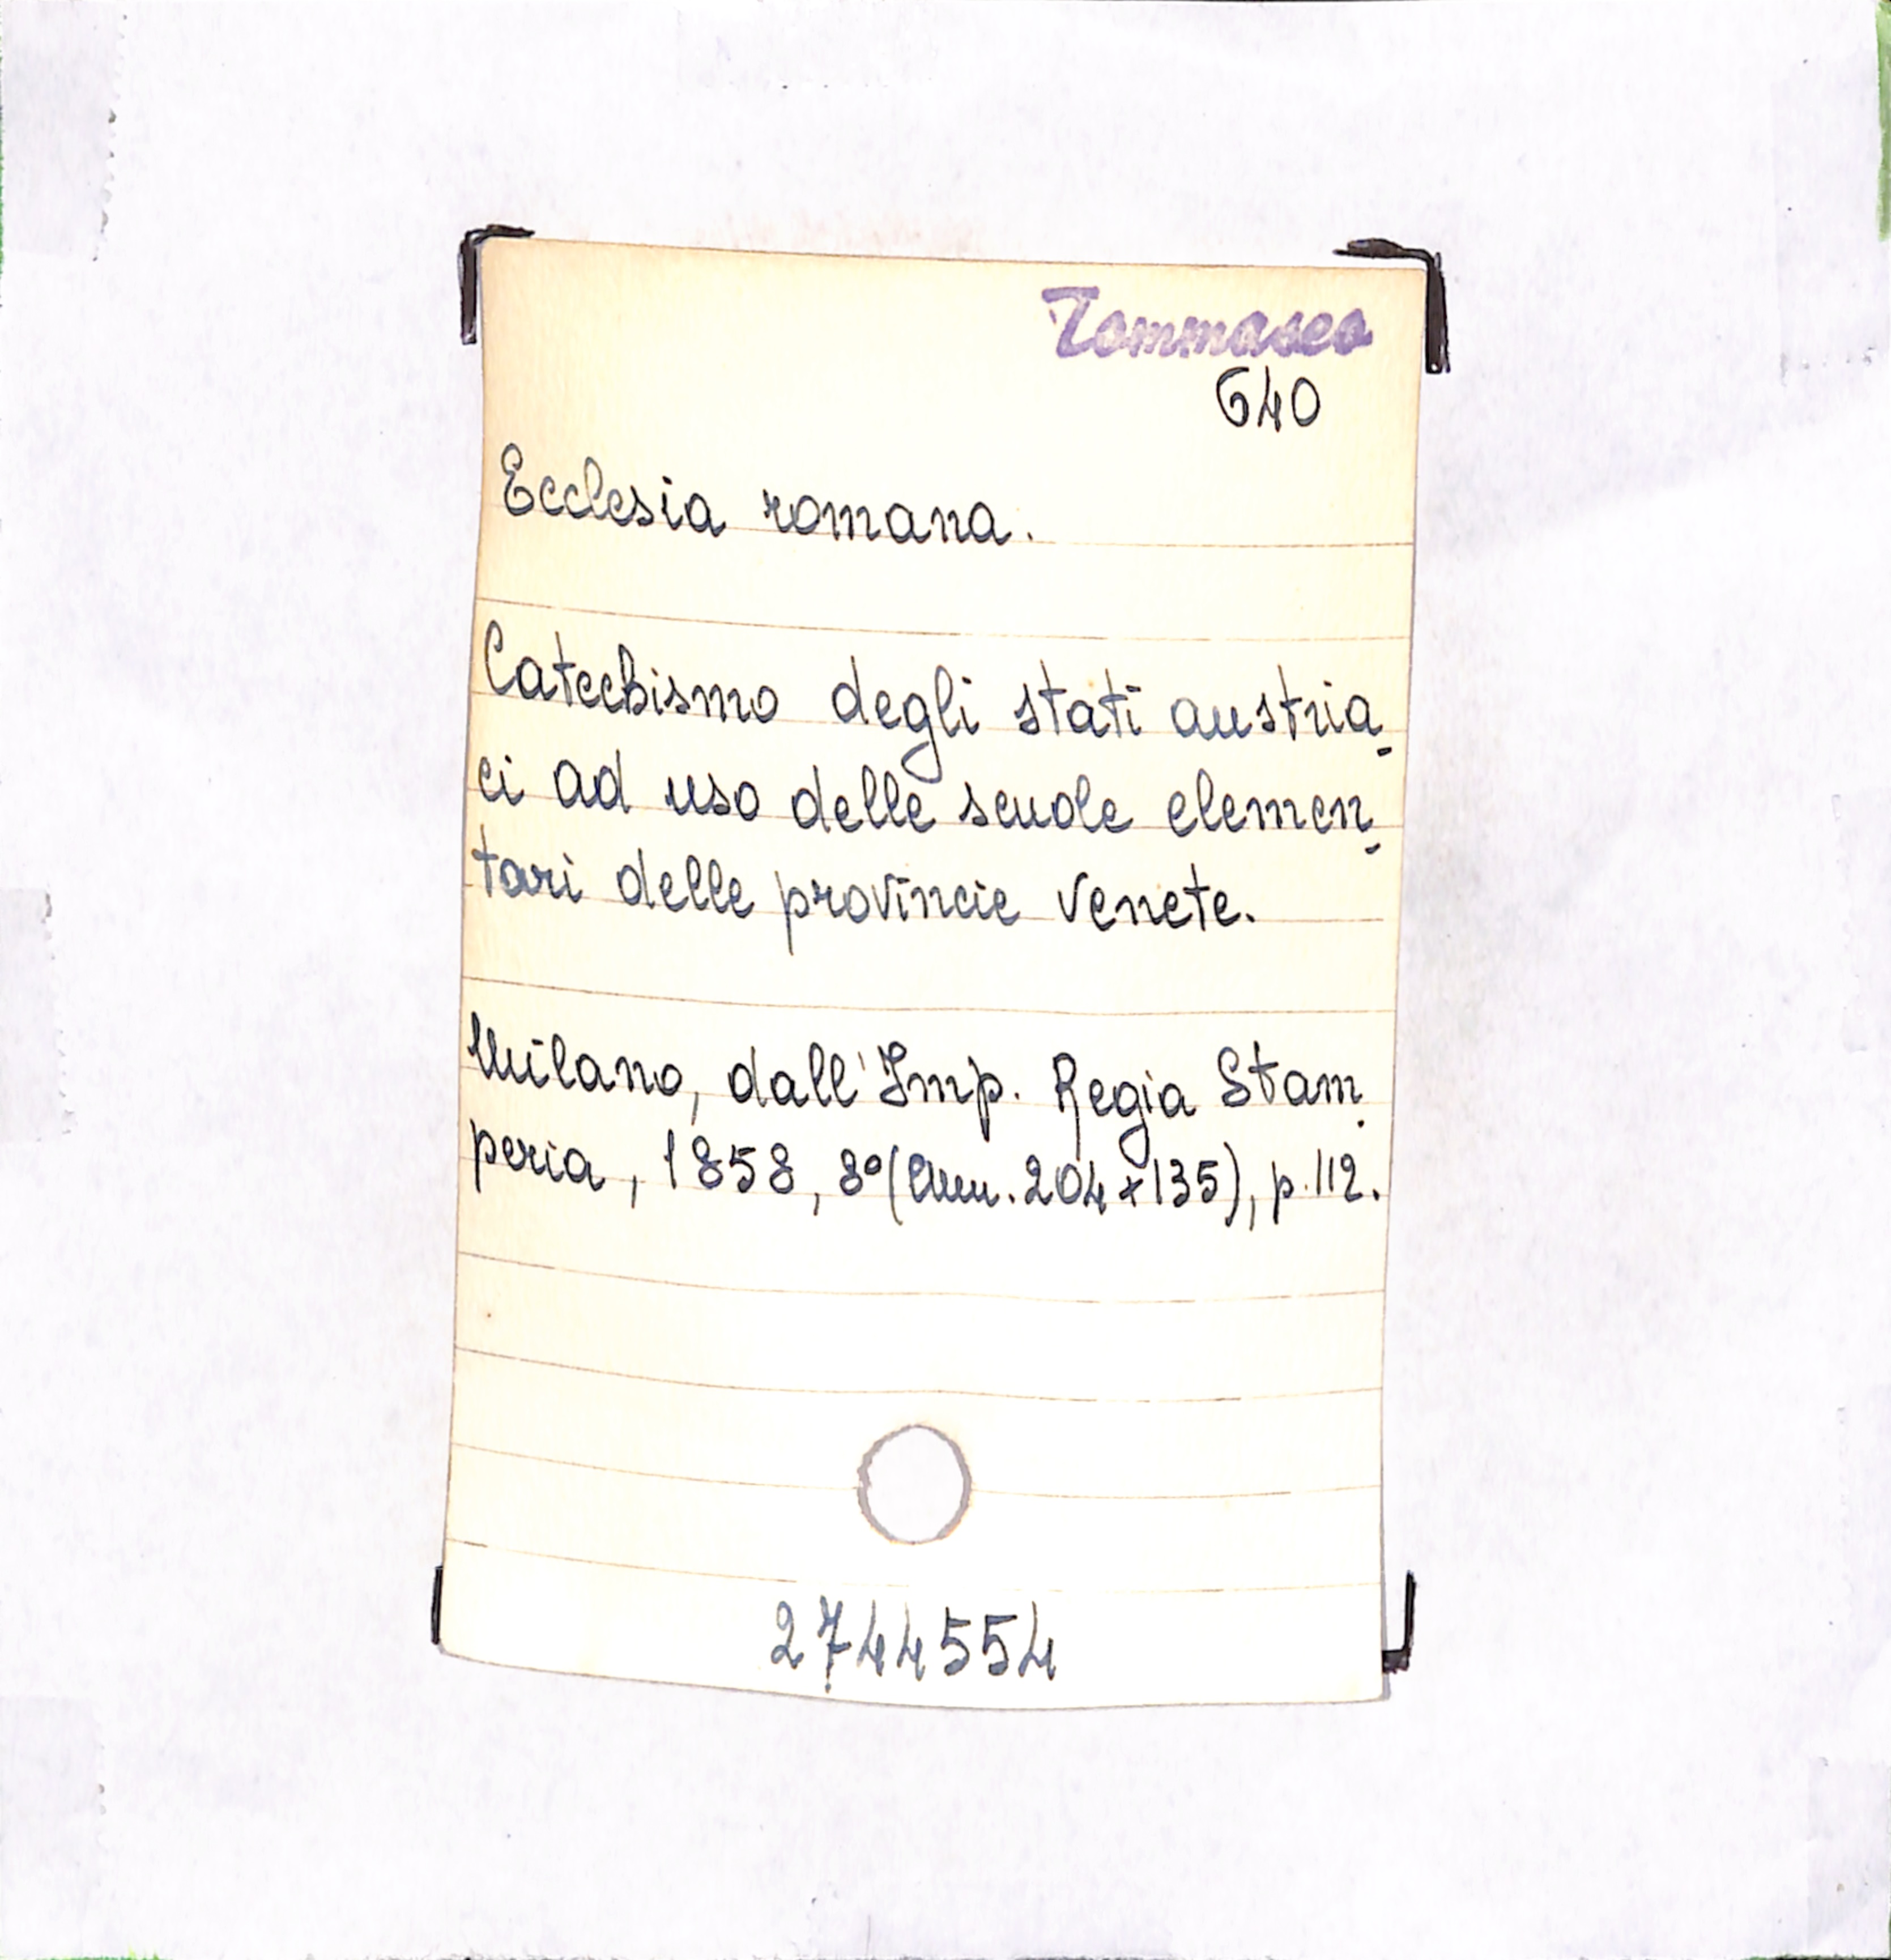 Tommaseo
640
Ecclesia romana.
Catechismo degli stati austria-
ci ad uso delle scuole elemen-
tari delle provincie venete.
Milano, dall'Imp. Regia Stam-
peria, 1858, 8° (mm. 204 x 135), p. 112.
2744554